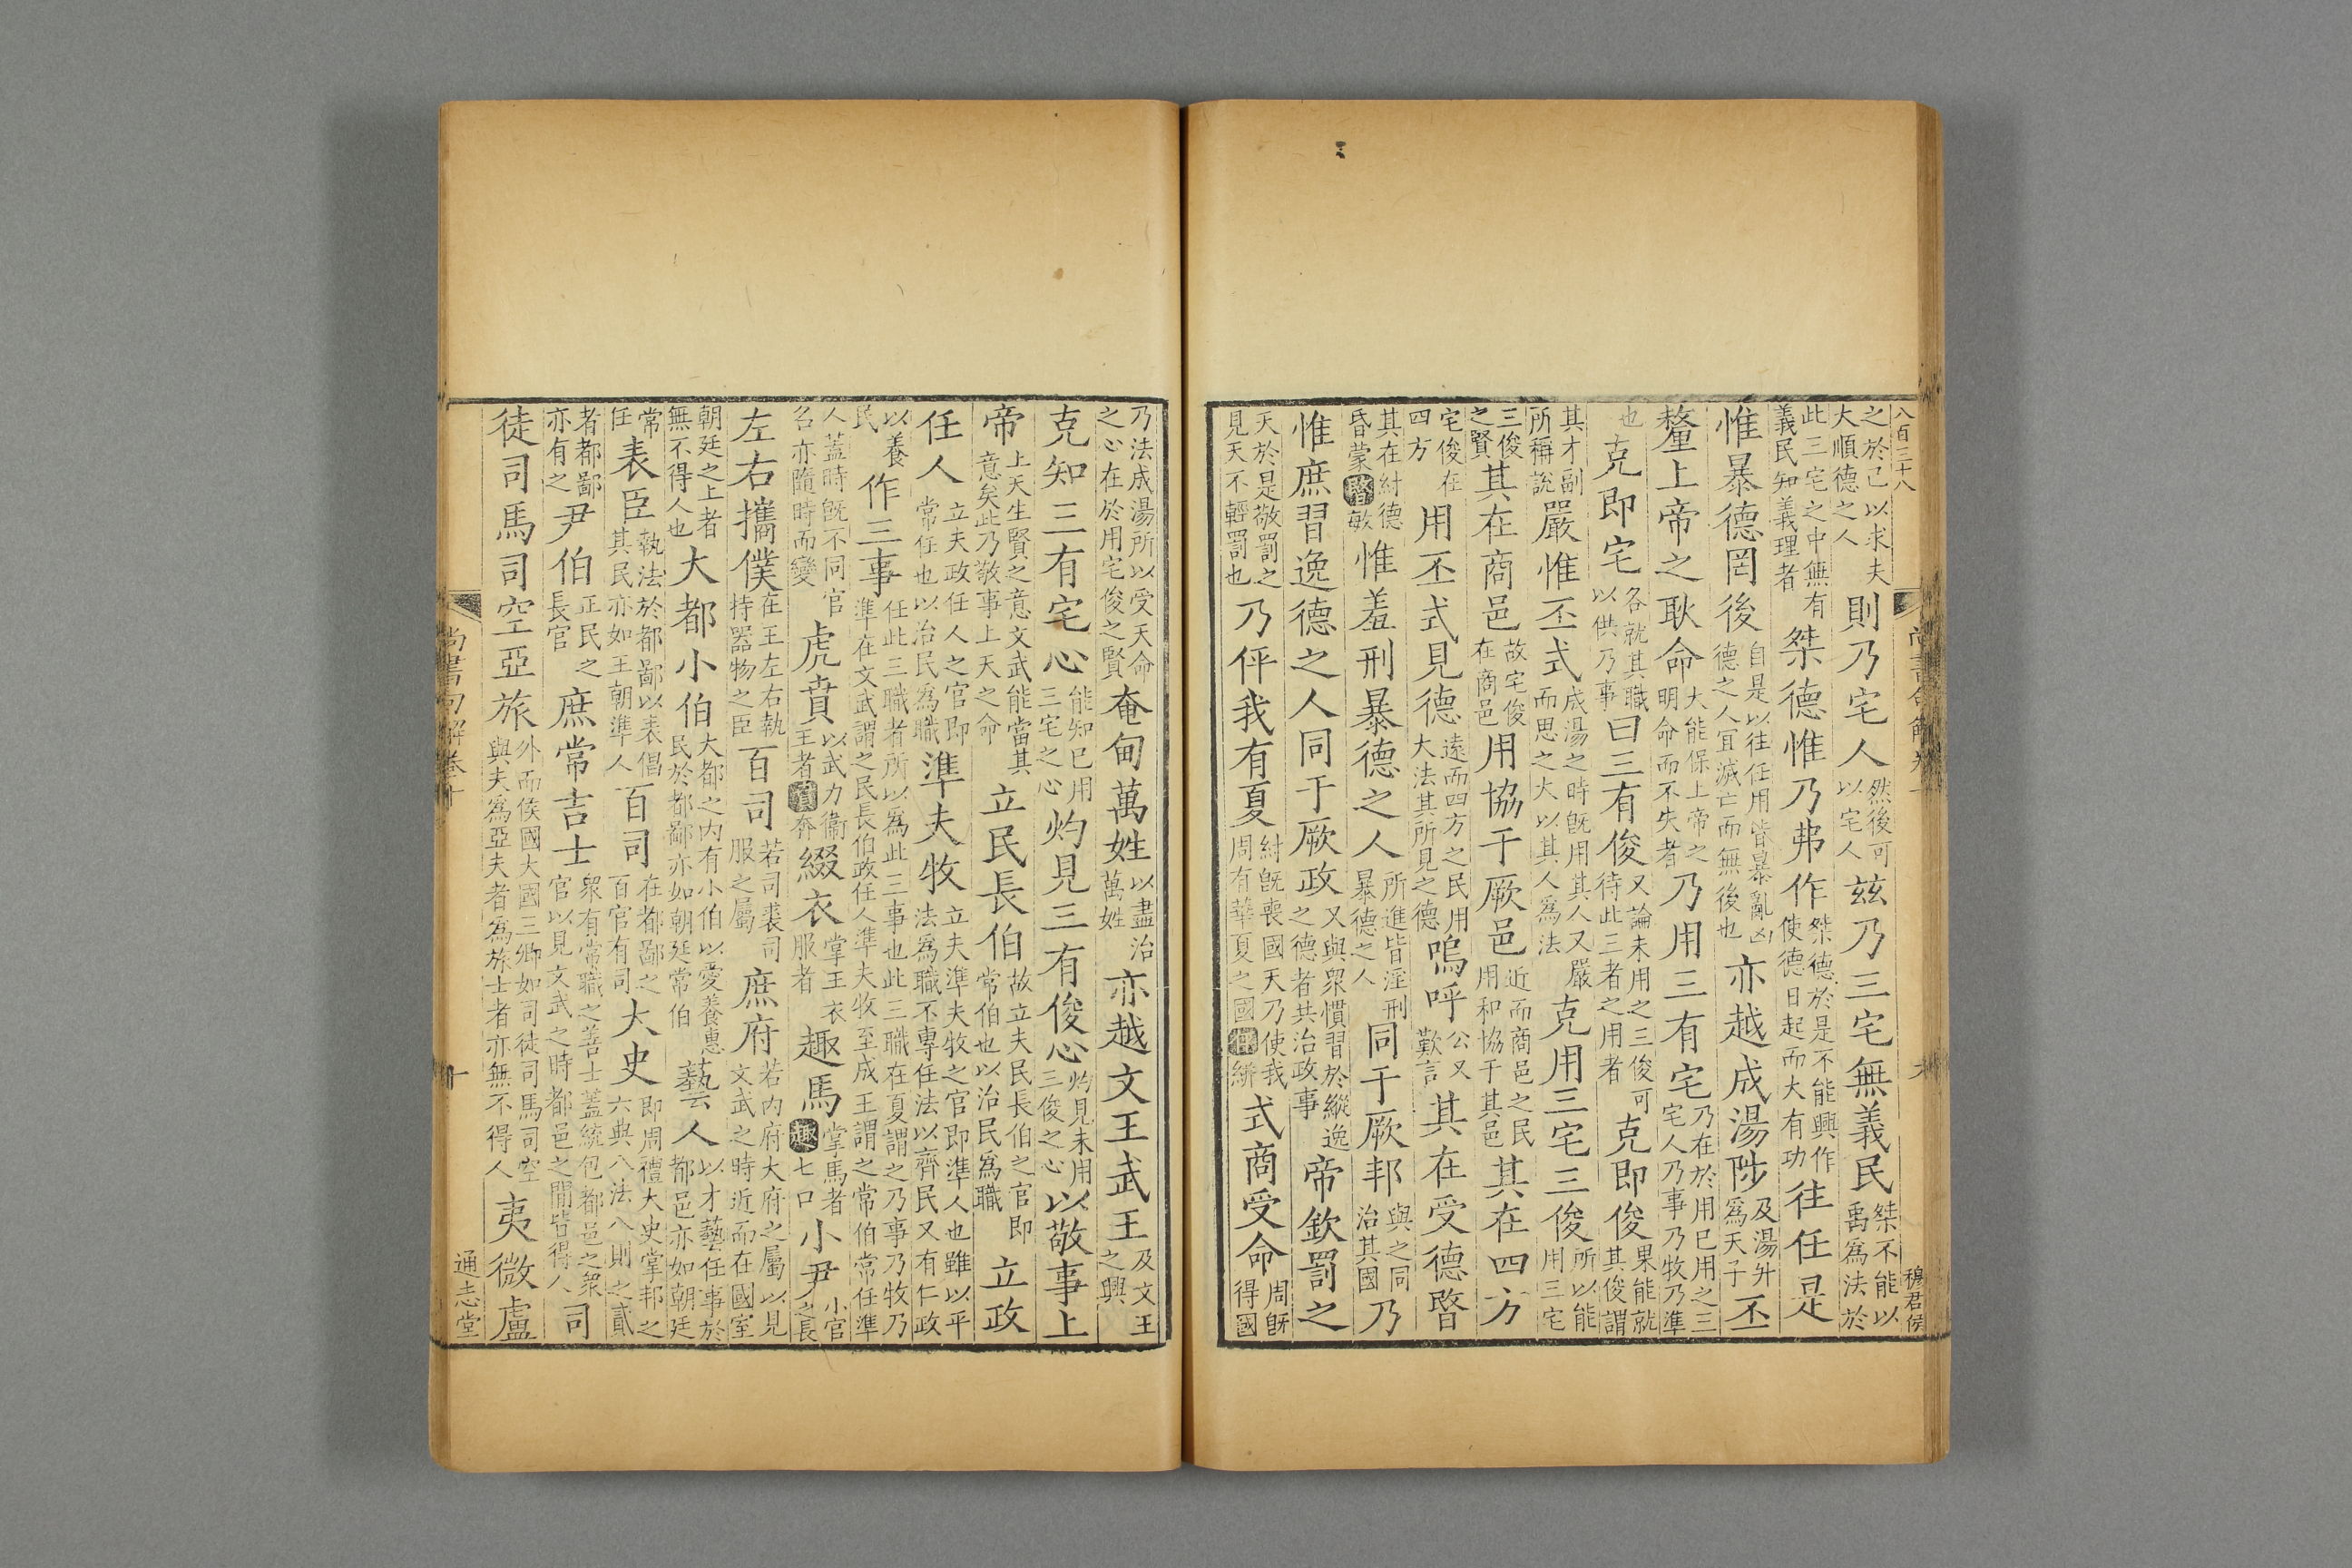 八百三十八
尚書句解卷十
穆君侯
之於己以求夫大順德之人則乃宅人然後可以宅人兹乃三宅無義民桀不能以禹爲法於
此三宅之中無有義民知義理者桀德惟乃弗作桀德於是不能興作使德日起而大有功往任是
惟暴德罔後自是以往任用皆暴亂凶德之人冝滅亡而無後也亦越成湯陟及湯升爲天子丕
釐上帝之耿命大能保上帝之明命而不失者乃用三有宅乃在於用已用之三宅人乃事乃牧乃準
也克即宅各就其職以供乃事曰三有俊又論未用之三俊可待此三者之用者克即俊果能就其俊謂
其才副所稱說嚴惟丕式成湯之時旣用其人又嚴而思之大以其人爲法克用三宅三俊所以能用三宅
三俊之賢其在商邑故宅俊在商邑用協于厥邑近而商邑之民用和協于其邑其在四方
宅俊在四方用丕式見德遠而四方之民用大法其所見之德嗚呼公又歎言其在受德暋
其在紂德昏蒙暋敏惟羞刑暴德之人所進皆淫刑暴德之人同于厥邦與之同治其國乃
惟庶習逸德之人同于厥政又與衆慣習於縱逸之德者其治政事帝欽罰之
天於是敬罰之見天不輕罰也乃伻我有夏紂旣喪國天乃使我周有華夏之國伻絣式商受命周旣得國
乃法成湯所以受天命之心在於用宅俊之賢奄甸萬姓以盡治萬姓亦越文王武王及文王之興
克知三有宅心能知已用三宅之心灼見三有俊心灼見未用三俊之心以敬事上
帝上天生賢之意文武能當其意矣此乃敬事上天之命立民長伯故立夫民長伯之官即常伯也以治民爲職立政
任人立夫政任人之官即常任也以治民爲職準夫牧立夫準夫牧之官即準人也雖以平法爲職不專任法以齊民又有仁政
以養民作三事任此三職者所以爲此三事也此三職在夏謂之乃事乃牧乃準在文武謂之民長伯政任人準夫牧至成王謂之常伯常任準
人蓋時旣不同官名亦隨時而變虎賁以武力衞王者賁奔綴衣掌王衣服者趣馬掌馬者趣七口小尹小官之長
左右攜僕在王左右執持器物之臣百司若司裘司服之屬庶府若內府大府之屬以見文武之時近而在國室
朝廷之上者無不得人也大都小伯大都之內有小伯以愛養惠民於都鄙亦如朝廷常伯藝人以才藝任事於都邑亦如朝廷
常任表臣執法於都鄙以表倡其民亦如王朝準人百司在都鄙之百官有司大史即周禮大史掌邦之六典八法八則之貳
者都鄙亦有之尹伯正民之長官庶常吉士衆有常職之善士蓋統包都邑之衆官以見文武之時都邑之閒皆得人司
徒司馬司空亞旅外而侯國大國三卿如司徒司馬司空與夫爲亞夫者爲旅士者亦無不得人夷微盧
尚書句解卷十
十
通志堂